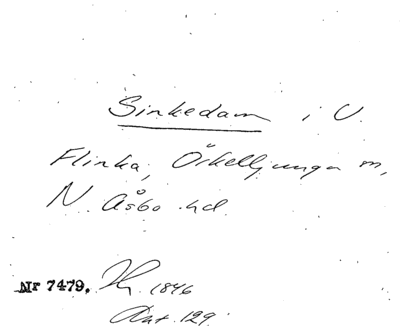 Sinkedam i V.
Flinka, Örkelljunga sn,
N. Åsbo hd.
Nr 7479. 1846
Ant. 129.